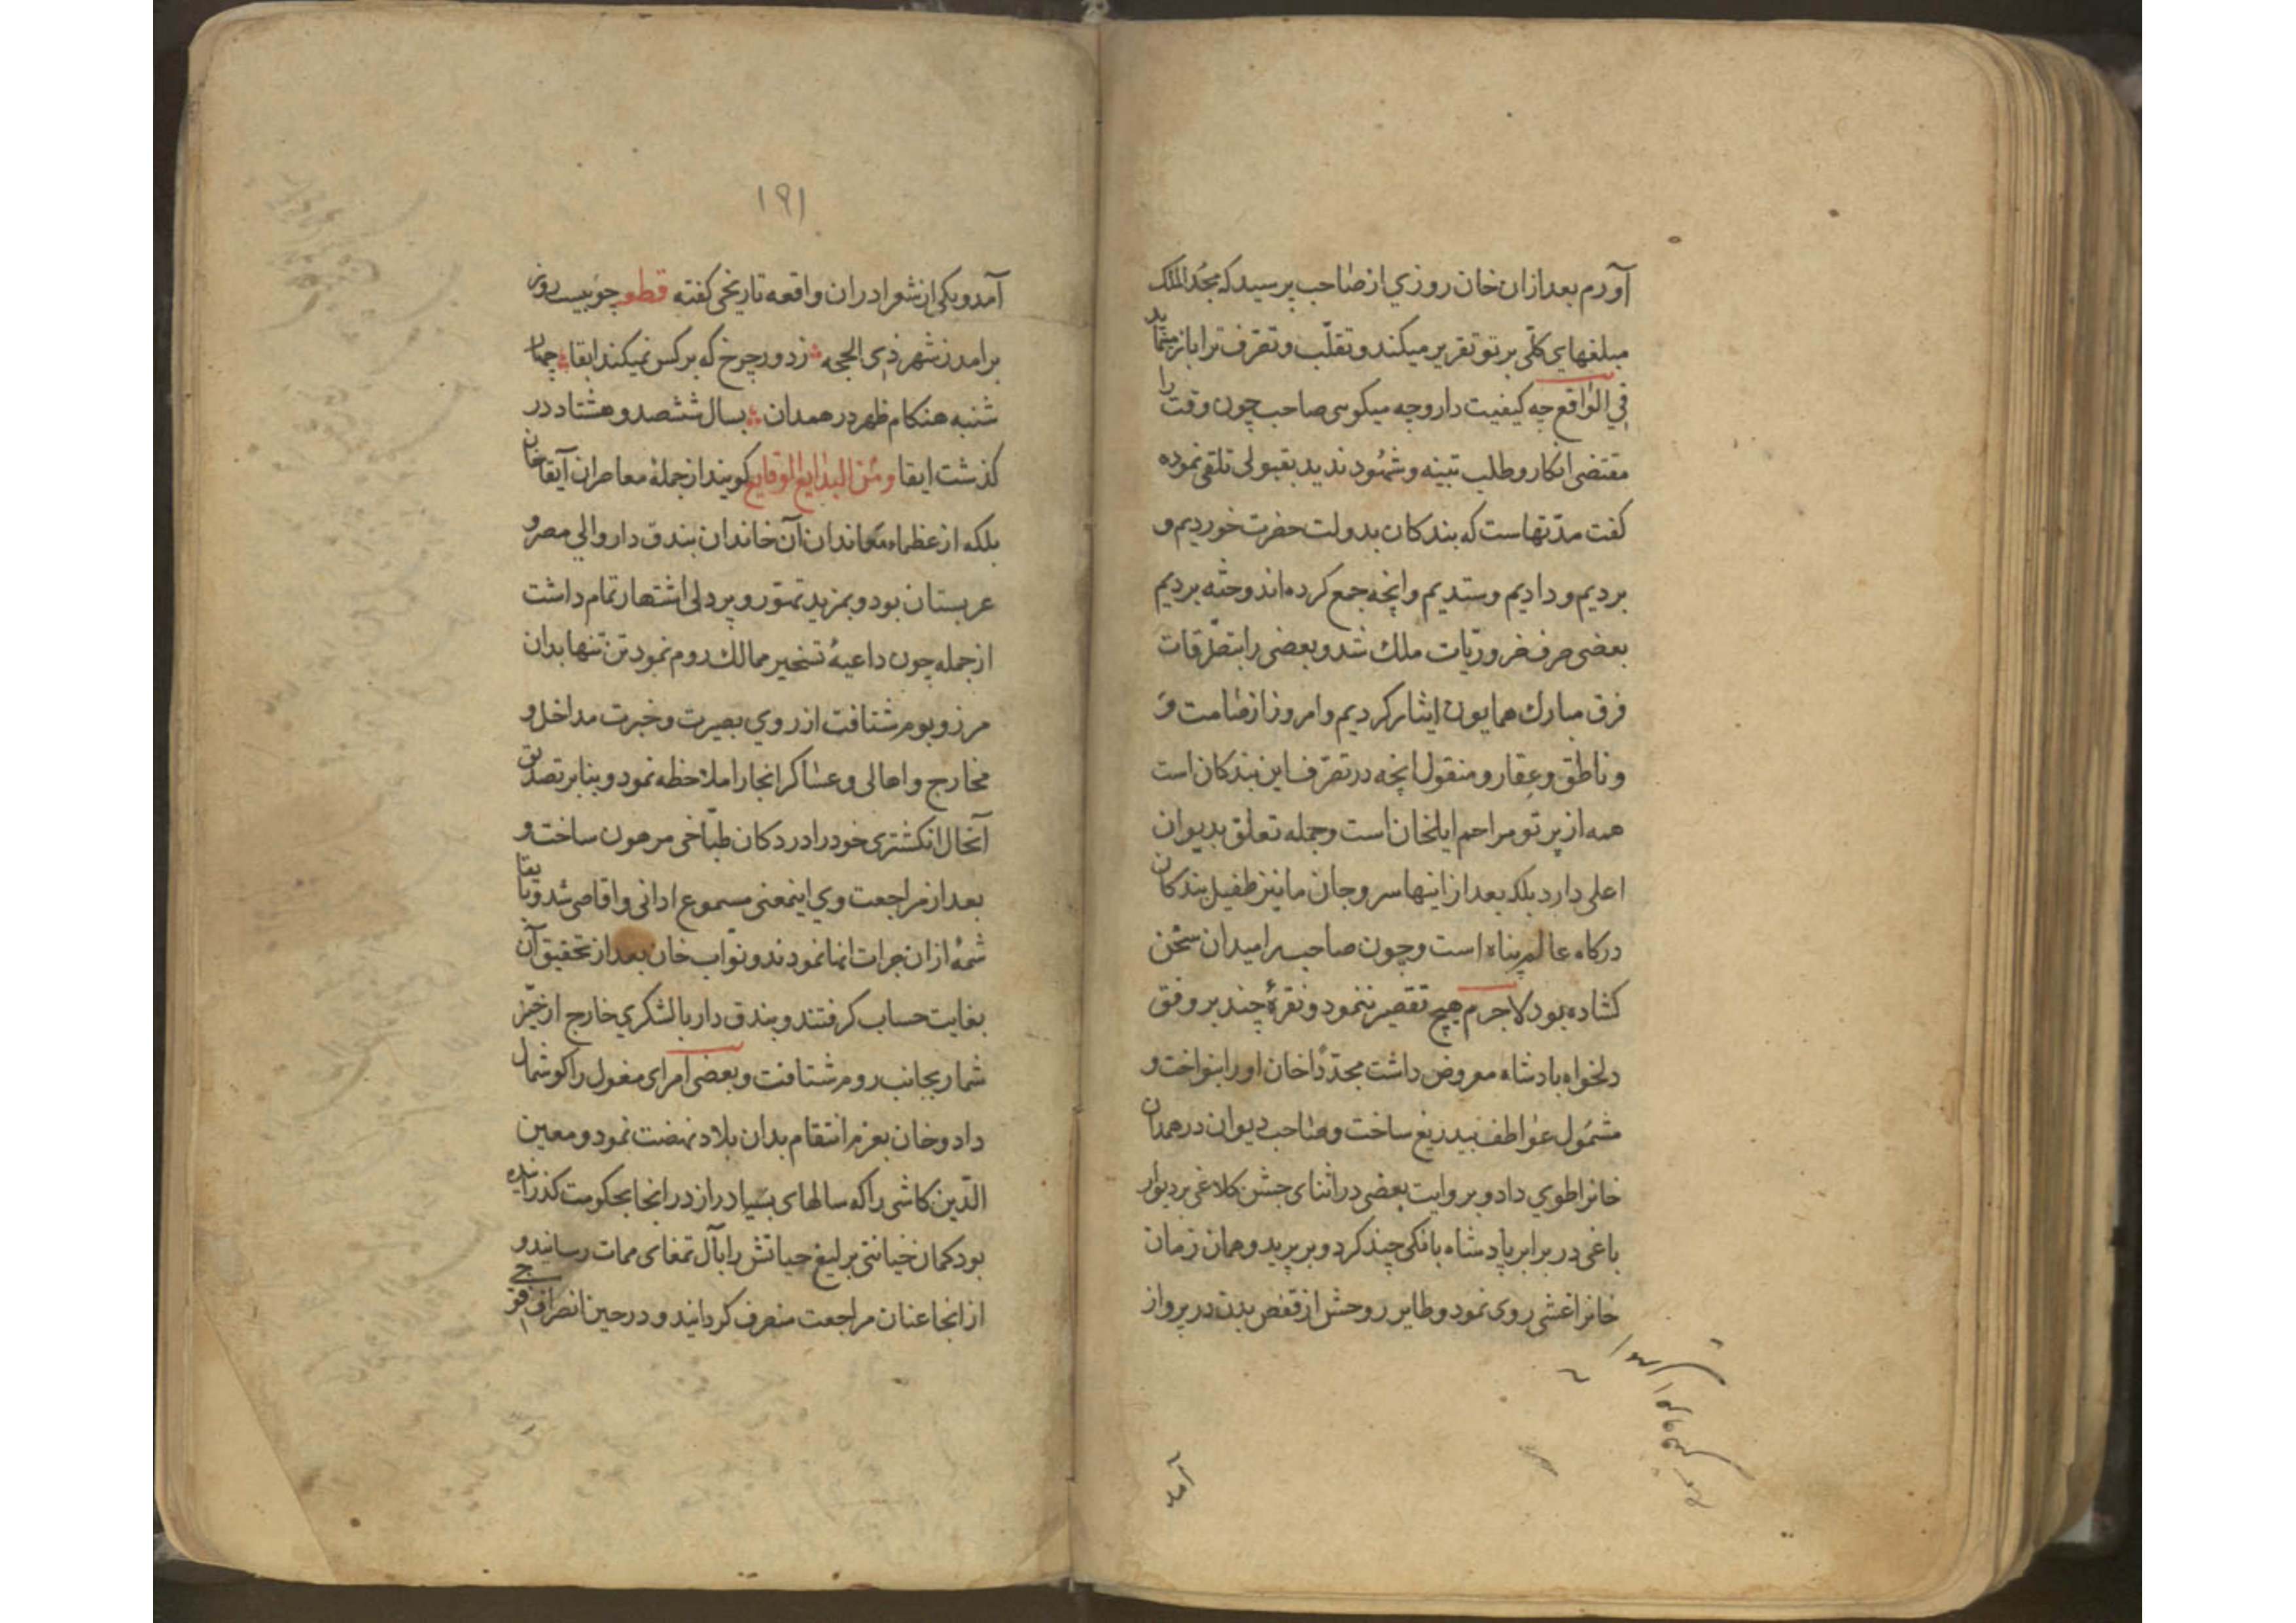 آورم بعد ازان خان روزي از صاحب پرسید که مجد الملک
مبلغهاي کلّی بر تو تقریر میکند و تقلّب و تصرّف ترا باز مینماید
في الواقع چه کیفیت دارد چه میکوئی صاحب چون وقت را
مقتضی انکار و طلب بینه و شهود ندید بقبولی تلقی نموده
کفت مدّتهاست که بندکان بدولت حضرت خوردیم و
بردیم و دادیم و ستدیم و آنچه جمع کرده‌اند و حثه بردیم
بعضی صرف ضروریّات ملک شد و بعضی را بتصدّقات
فرق مبارك همایون ایثار کردیم و امروز از صامت و
و ناطق و عقار و منقول آنچه در تصرّف این بندکان است
همه از پرتو مراحم ایلخان است و جمله تعلق بدیوان
اعلی دارد بلکه بعد از اینها سر و جان ما نیز طفیل بندکان
درکاه عالم پناه است و چون صاحب را میدان سخن
کشاده بود لاجرم هیچ تقصیر ننمود و نقرۀ چند بر وفق
دلخواه پادشاه معروض داشت مجدّدًا خان او را بنواخت و
مشمول عواطف بیدریغ ساخت و صاحب دیوان در همدان
خانرا طوي داد و بروایت بعضی در اثنای جشن کلاغی بر دیوار
باغی در برابر پادشاه بانکی چند کرد و بر پرید و همان زمان
خانرا غشی روی نمود و طایر روحش از قفص بدن در پرواز
۱۹۱
آمد و یکی از شعرا دران واقعه تاریخی کفته قطعه چو بیست روز
برامد ز شهر ذی الحجه ز دور چرخ که بر کس نمیکند ابقا چهار
شنبه هنکام ظهر در همدان بسال ششصد و هشتاد در
کذشت ابقا و من البدایع الوقایع کویند از جملۀ معاصران آبقا خان
بلکه از عظماء معاندان آن خاندان بندق دار والي مصر و
عربستان بود و بمزید تهوّر و پر دلی اشتهار تمام داشت
از جمله چون داعیۀ تسخیر ممالك روم نمود تن تنها بدان
مرز و بوم شتافت از روي بصیرت و خبرت مداخل و
مخارج و اهالی و عساکر انجا را ملاحظه نمود و بنابر تصدیق
آنحال انکشتری خود را در دکان طبّاخی مرهون ساخت و
بعد از مراجعت وي اینمعنی مسموع ادانی و اقاصی شد و بابقا
شمۀ ازان جرات انها نمودند و نوّاب خان بعد از تحقیق آن
بغایت حساب کرفتند و بندق دار با لشکري خارج از حیّز
شمار بجانب روم شتافت و بعضی امرای مغول را کوشمال
داد و خان بعزم انتقام بدان بلاد نهضت نمود و معین
الدّین کاشی را که سالهای بسیار دراز در انجا بحکومت کذرانیده
بود بکمان خیانتی یرلیغ حیاتش را بآل تمغای ممات رسانید و
از انجا عنان مراجعت منصرف کردانید و در حین انصراف